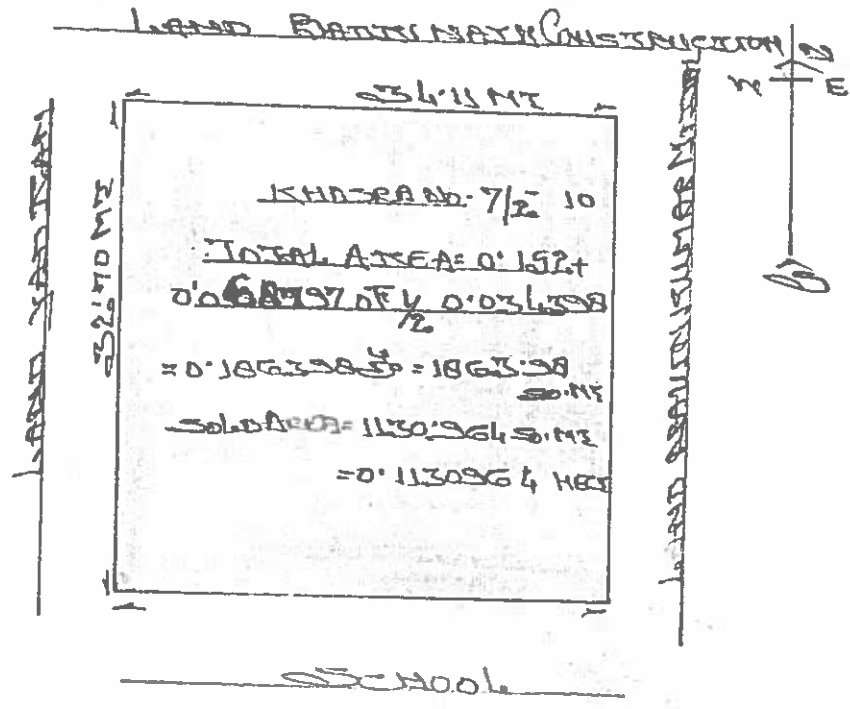 LAND BADRI NATH CONSTRUCTION
N
W E
S
34.11 MT
32.70 MT
LAND
LAND ARAVIND KUMAR
KHASRA NO. 7/2 10
TOTAL AREA = 0.152+
OF 1/2 0.034398
= 0.186398 = 1863.98
SQ.MT
SOLD AREA = 1130.964 SQ.MT
= 0.1130964 HECT
SCHOOL